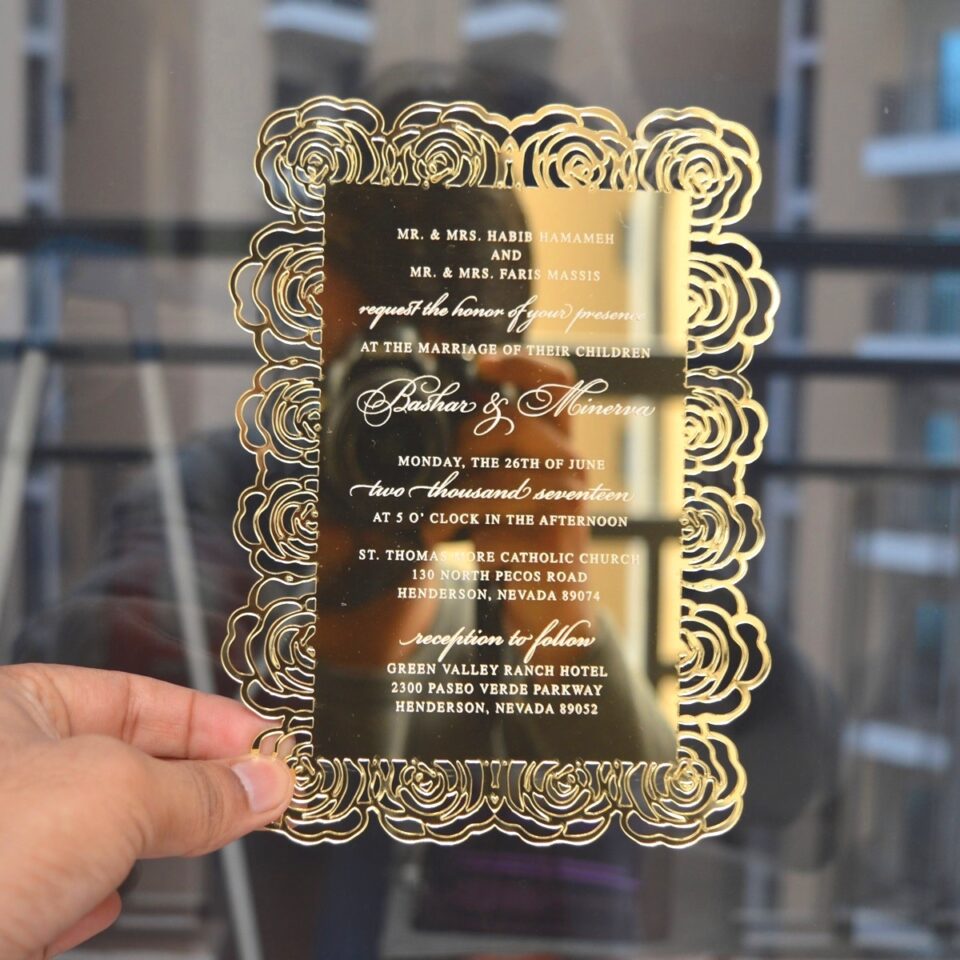 MR. & MRS. HABIB HAMAMEH
AND
MR. & MRS. FARIS MASSIS
request the honor of your presence
AT THE MARRIAGE OF THEIR CHILDREN
Bashar & Minerva
MONDAY, THE 26TH OF JUNE
two thousand seventeen
AT 5 O' CLOCK IN THE AFTERNOON
ST. THOMAS MORE CATHOLIC CHURCH
130 NORTH PECOS ROAD
HENDERSON, NEVADA 89074
reception to follow
GREEN VALLEY RANCH HOTEL
2300 PASEO VERDE PARKWAY
HENDERSON, NEVADA 89052